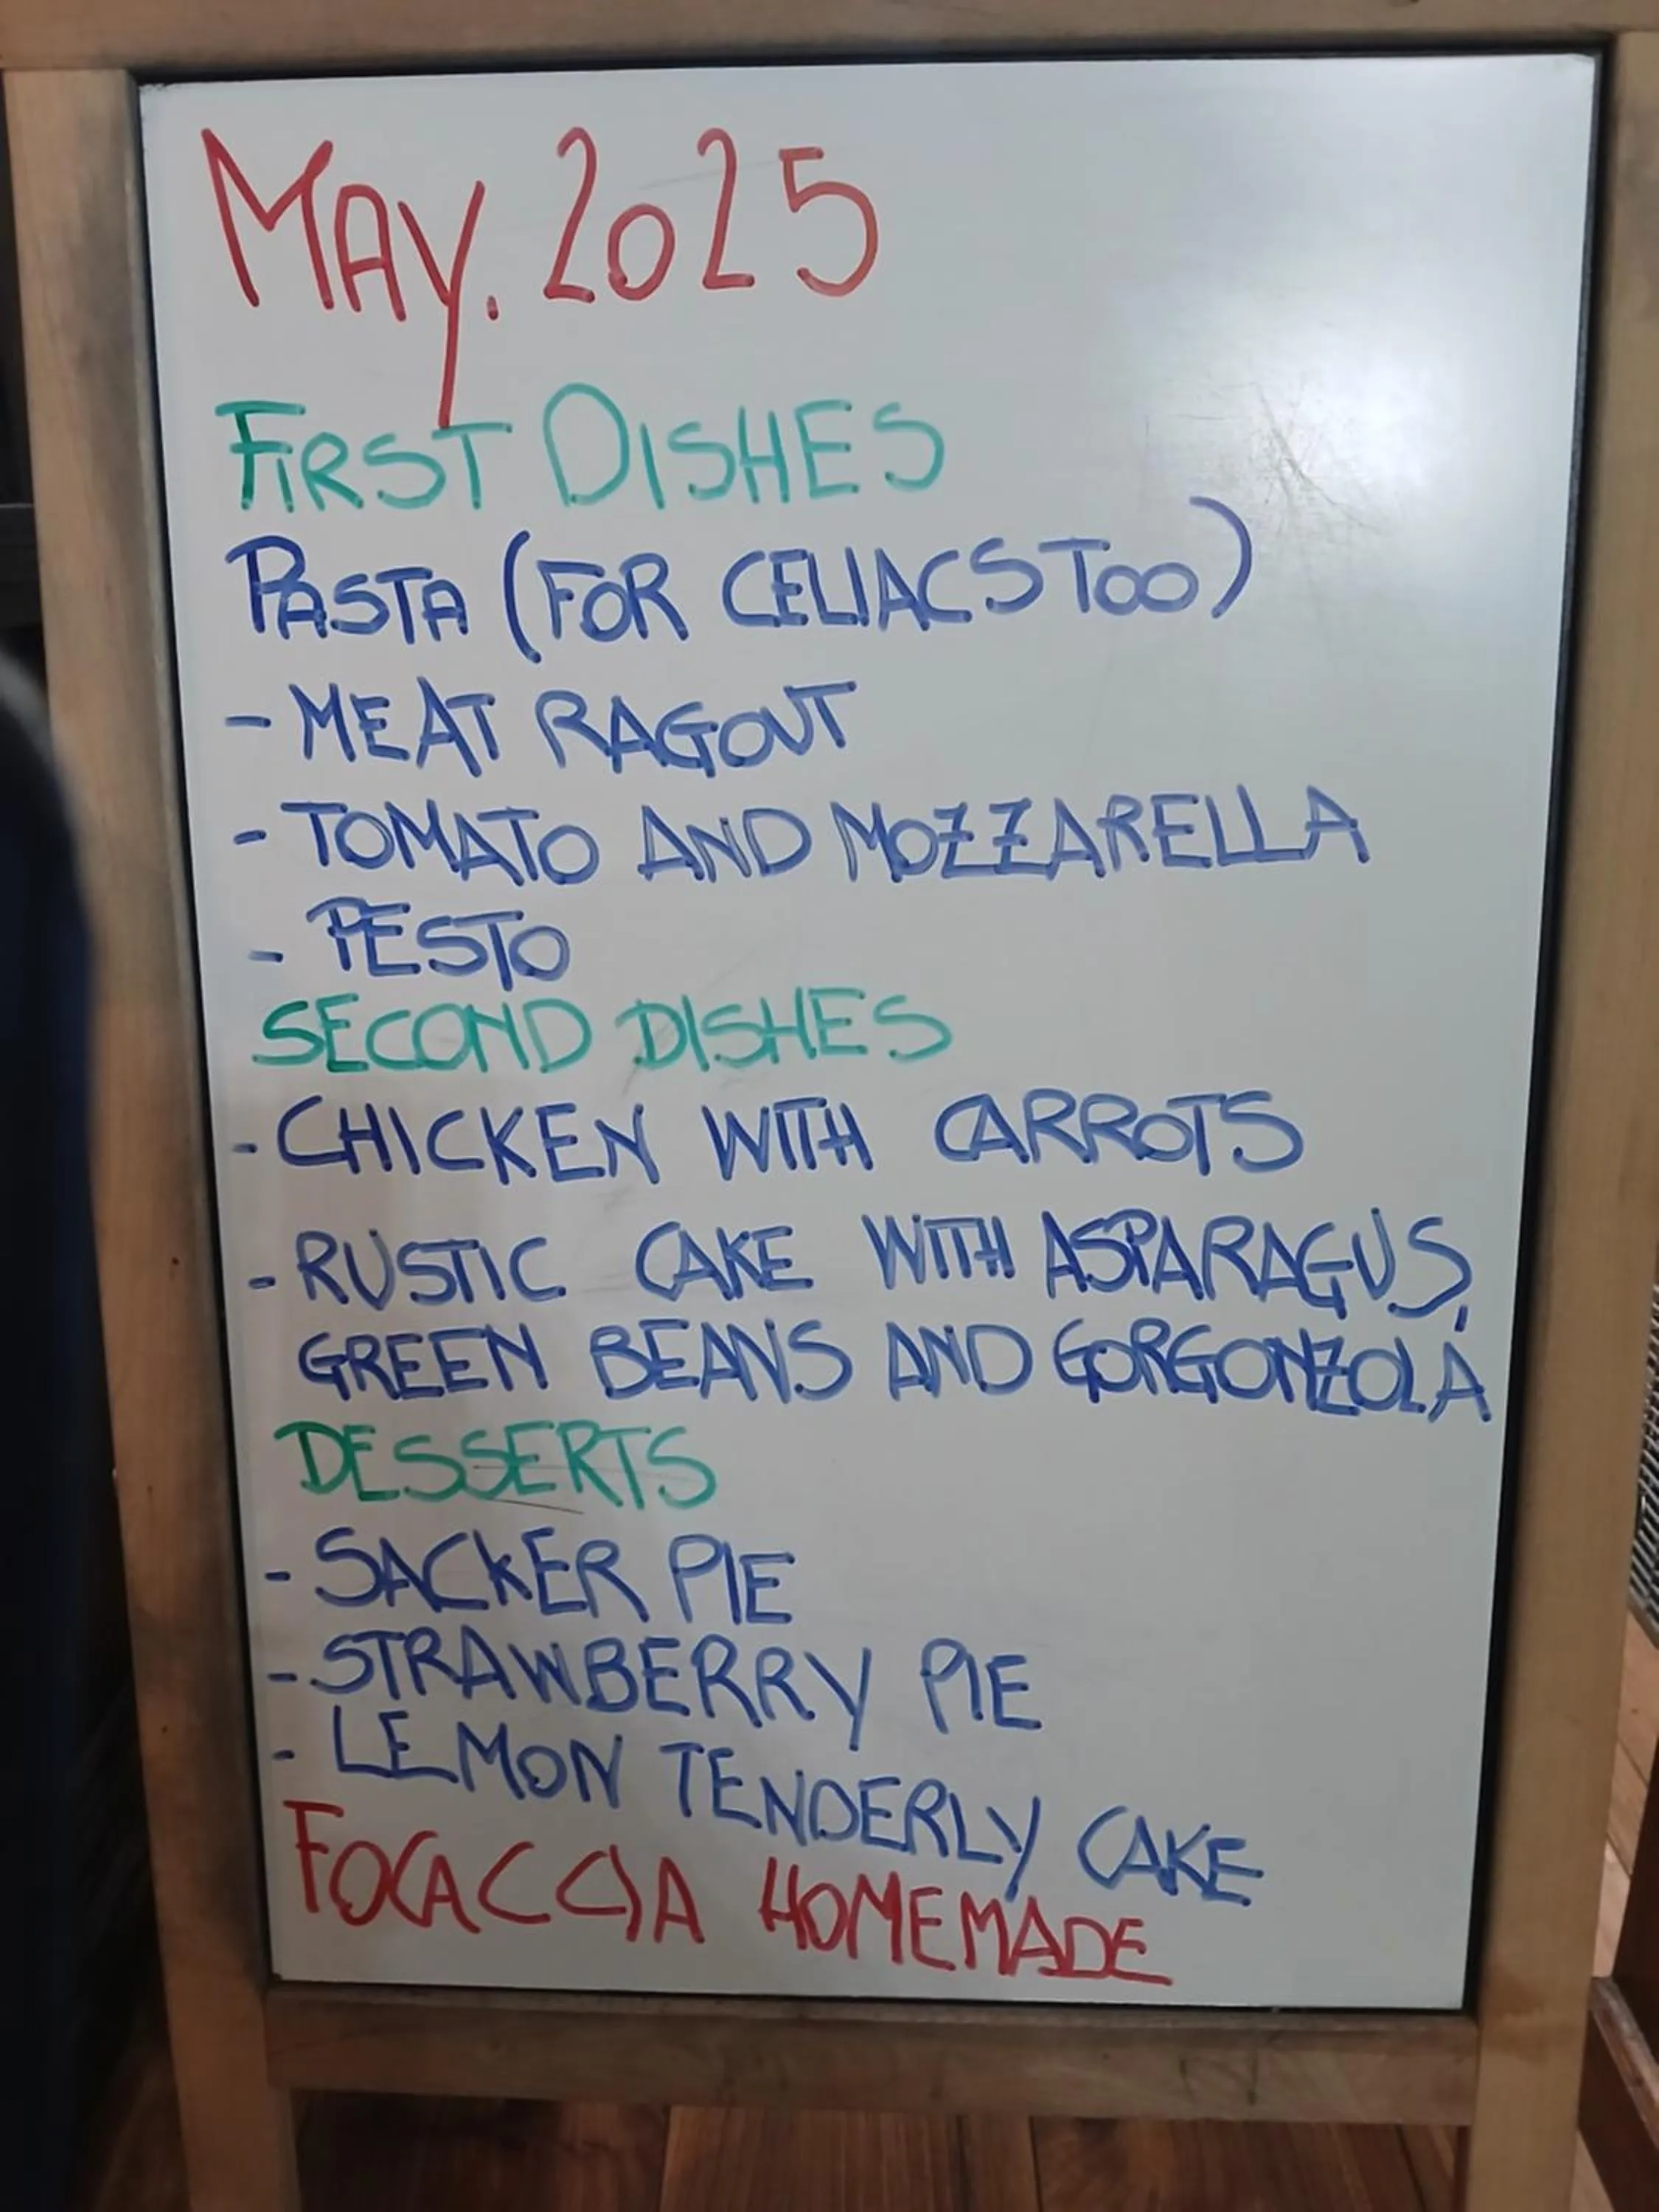 MAY. 2025
FIRST DISHES
PASTA (FOR CELIACS TOO)
- MEAT RAGOUT
- TOMATO AND MOZZARELLA
- PESTO
SECOND DISHES
- CHICKEN WITH CARROTS
- RUSTIC CAKE WITH ASPARAGUS,
GREEN BEANS AND GORGONZOLA
DESSERTS
- SACKER PIE
- STRAWBERRY PIE
- LEMON TENDERLY CAKE
FOCACCIA HOMEMADE